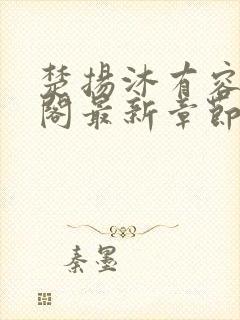 楚扬沐有容
阁最新章节
秦墨